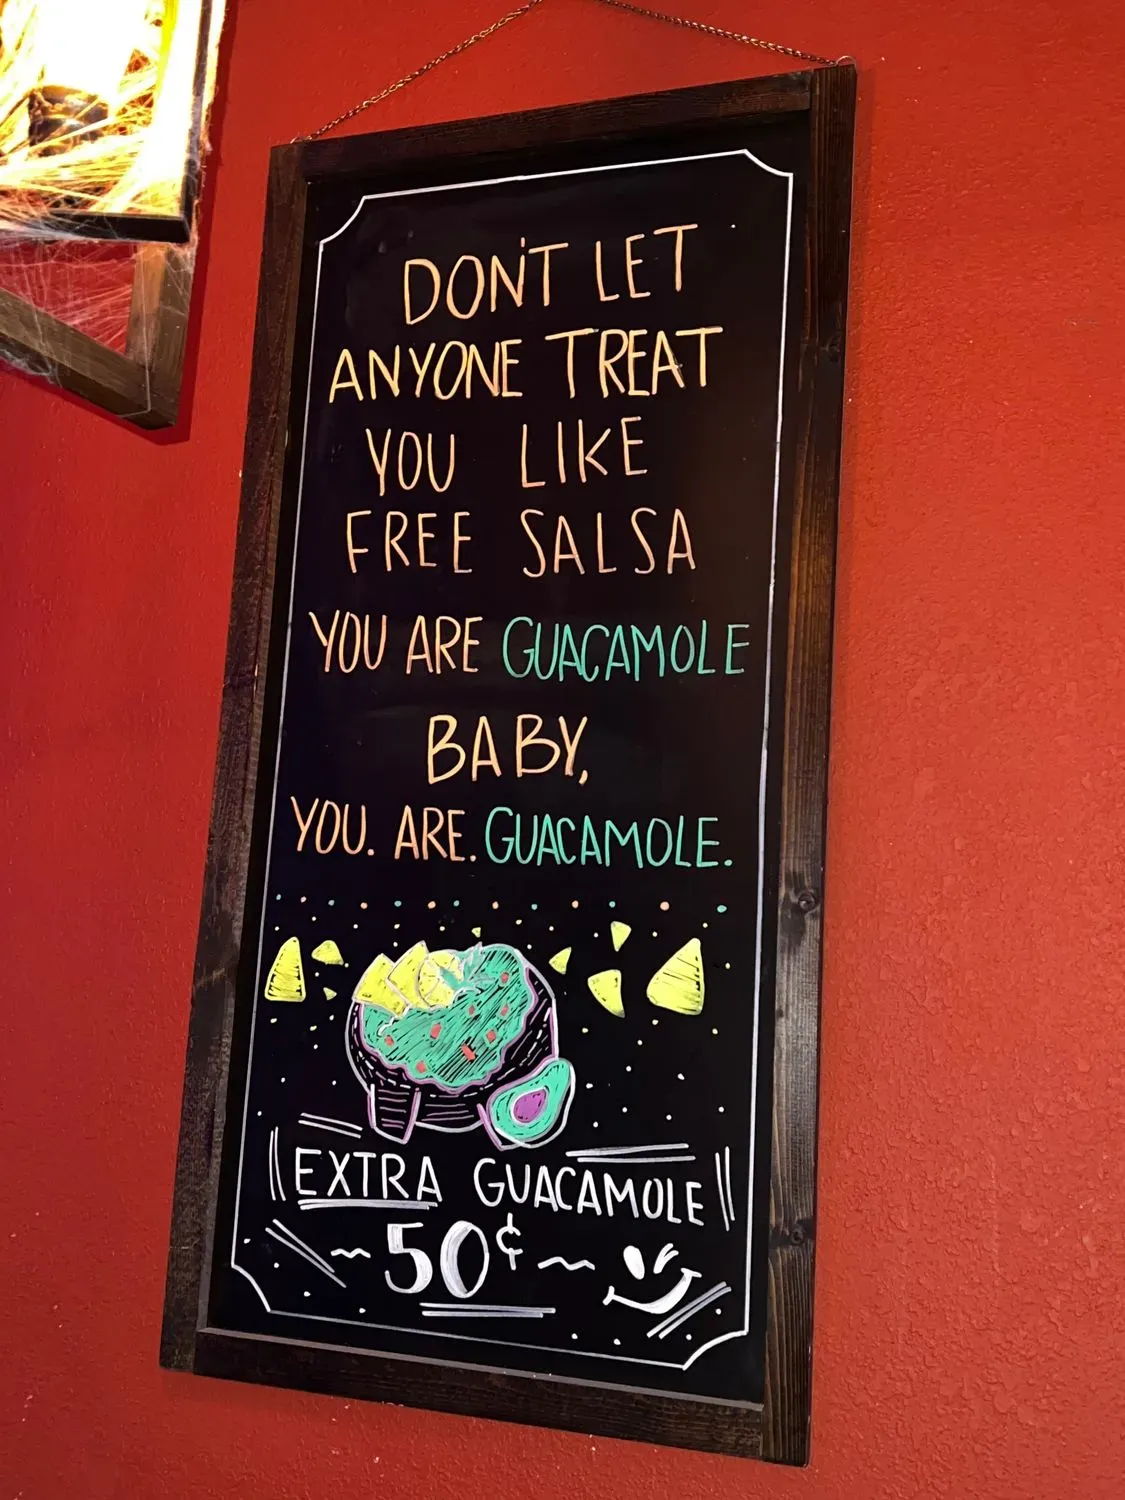 DON'T LET
ANYONE TREAT
YOU LIKE
FREE SALSA
YOU ARE GUACAMOLE
BABY,
YOU. ARE. GUACAMOLE.
EXTRA GUACAMOLE
~ 50¢ ~